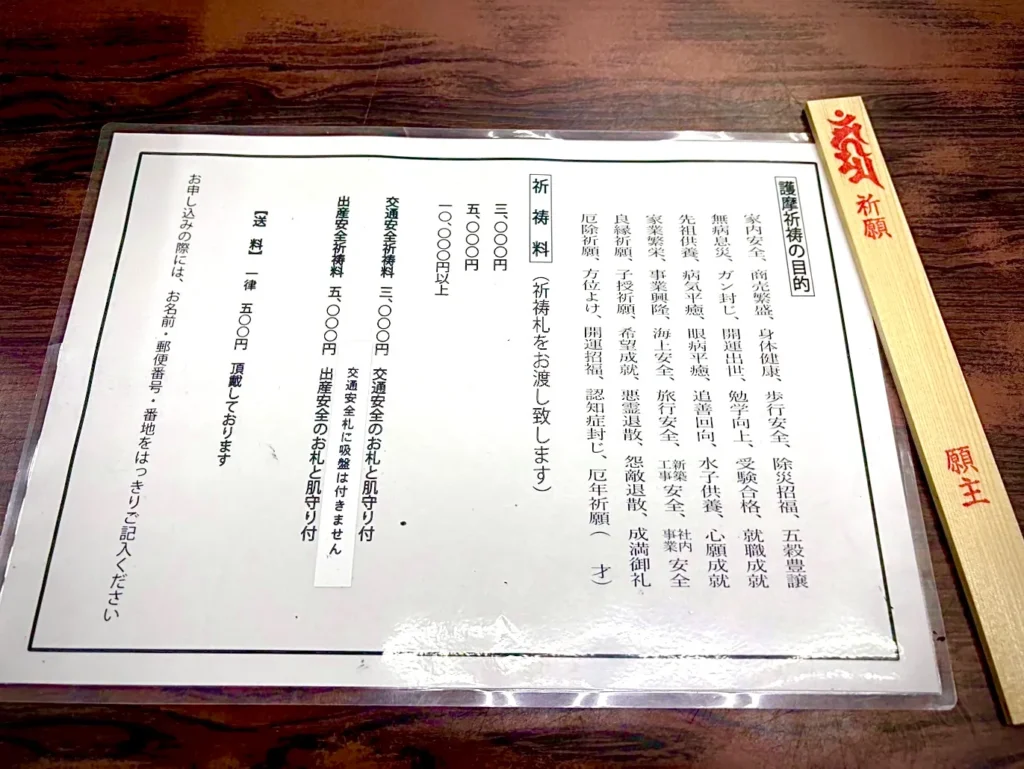 護摩祈祷の目的
家内安全、商売繁盛、身体健康、歩行安全、除災招福、五穀豊讓
無病息災、ガン封じ、開運出世、勉学向上、受験合格、就職成就
先祖供養、病気平癒、眼病平癒、追善回向、水子供養、心願成就
家業繁栄、事業興隆、海上安全、旅行安全、新築工事安全、社内事業安全
良縁祈願、子授祈願、希望成就、悪霊退散、怨敵退散、成満御礼
厄除祈願、方位よけ、開運招福、認知症封じ、厄年祈願(　才)
祈祷料 (祈祷札をお渡し致します)
三、〇〇〇円
五、〇〇〇円
一〇、〇〇〇円以上
交通安全祈祷料 三、〇〇〇円 交通安全のお札と肌守り付
交通安全札に吸盤は付きません
出産安全祈祷料 五、〇〇〇円 出産安全のお札と肌守り付
【送料】 一律 五〇〇円 頂戴しております
お申し込みの際には、お名前・郵便番号・番地をはっきりご記入ください
祈願
願主